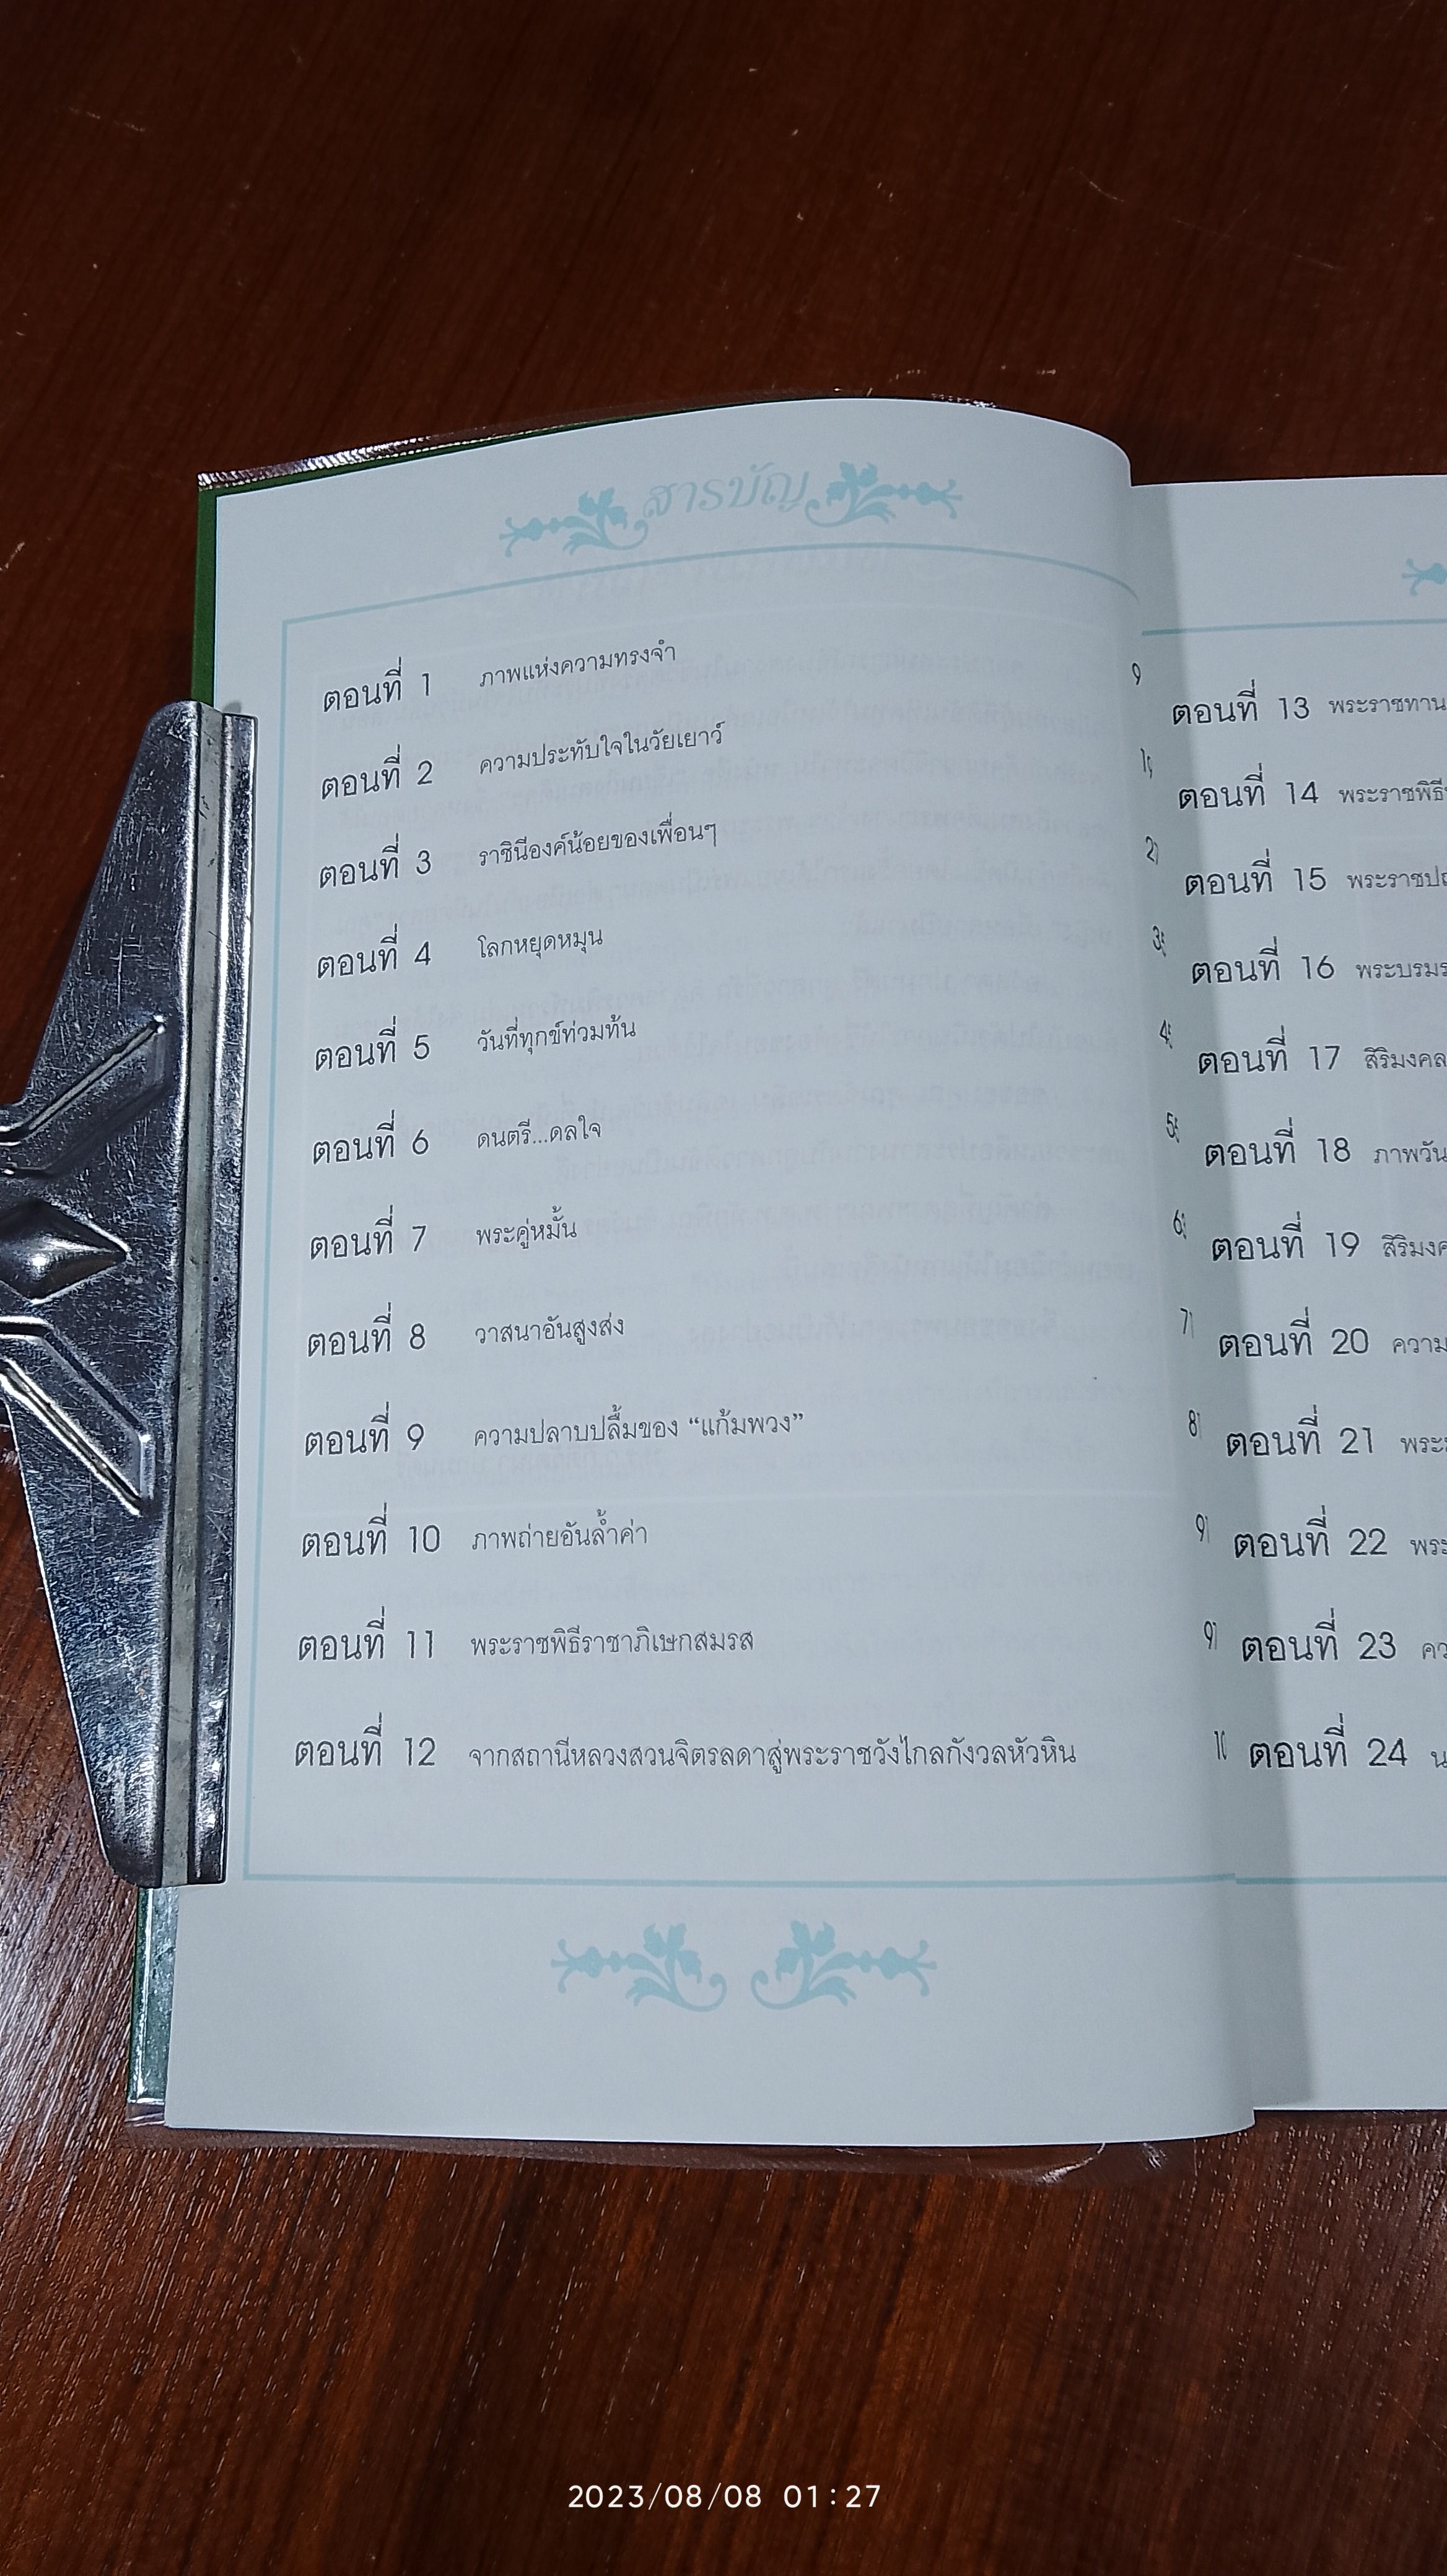 สารบัญ
ตอนที่ 1 ภาพแห่งความทรงจำ 9
ตอนที่ 2 ความประทับใจในวัยเยาว์
ตอนที่ 3 ราชินีองค์น้อยของเพื่อนๆ
ตอนที่ 4 โลกหยุดหมุน
ตอนที่ 5 วันที่ทุกข์ท่วมท้น
ตอนที่ 6 ดนตรี...ดลใจ
ตอนที่ 7 พระคู่หมั้น
ตอนที่ 8 วาสนาอันสูงส่ง
ตอนที่ 9 ความปลาบปลื้มของ “แก้มพวง”
ตอนที่ 10 ภาพถ่ายอันล้ำค่า
ตอนที่ 11 พระราชพิธีราชาภิเษกสมรส
ตอนที่ 12 จากสถานีหลวงสวนจิตรลดาสู่พระราชวังไกลกังวลหัวหิน
ตอนที่ 13 พระราชทาน
ตอนที่ 14 พระราชพิธี
ตอนที่ 15
ตอนที่ 16
ตอนที่ 17 สิริมงคล
ตอนที่ 18 ภาพวัน
ตอนที่ 19
ตอนที่ 20 ความ
ตอนที่ 21 พระ
ตอนที่ 22 พระ
ตอนที่ 23
ตอนที่ 24
2023/08/08 01:27